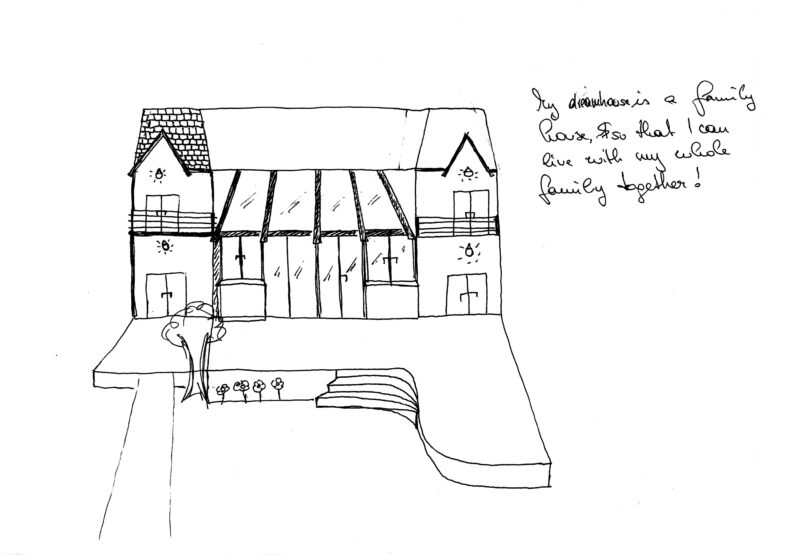 My dreamhouse is a family
house, so that I can
live with my whole
family together!